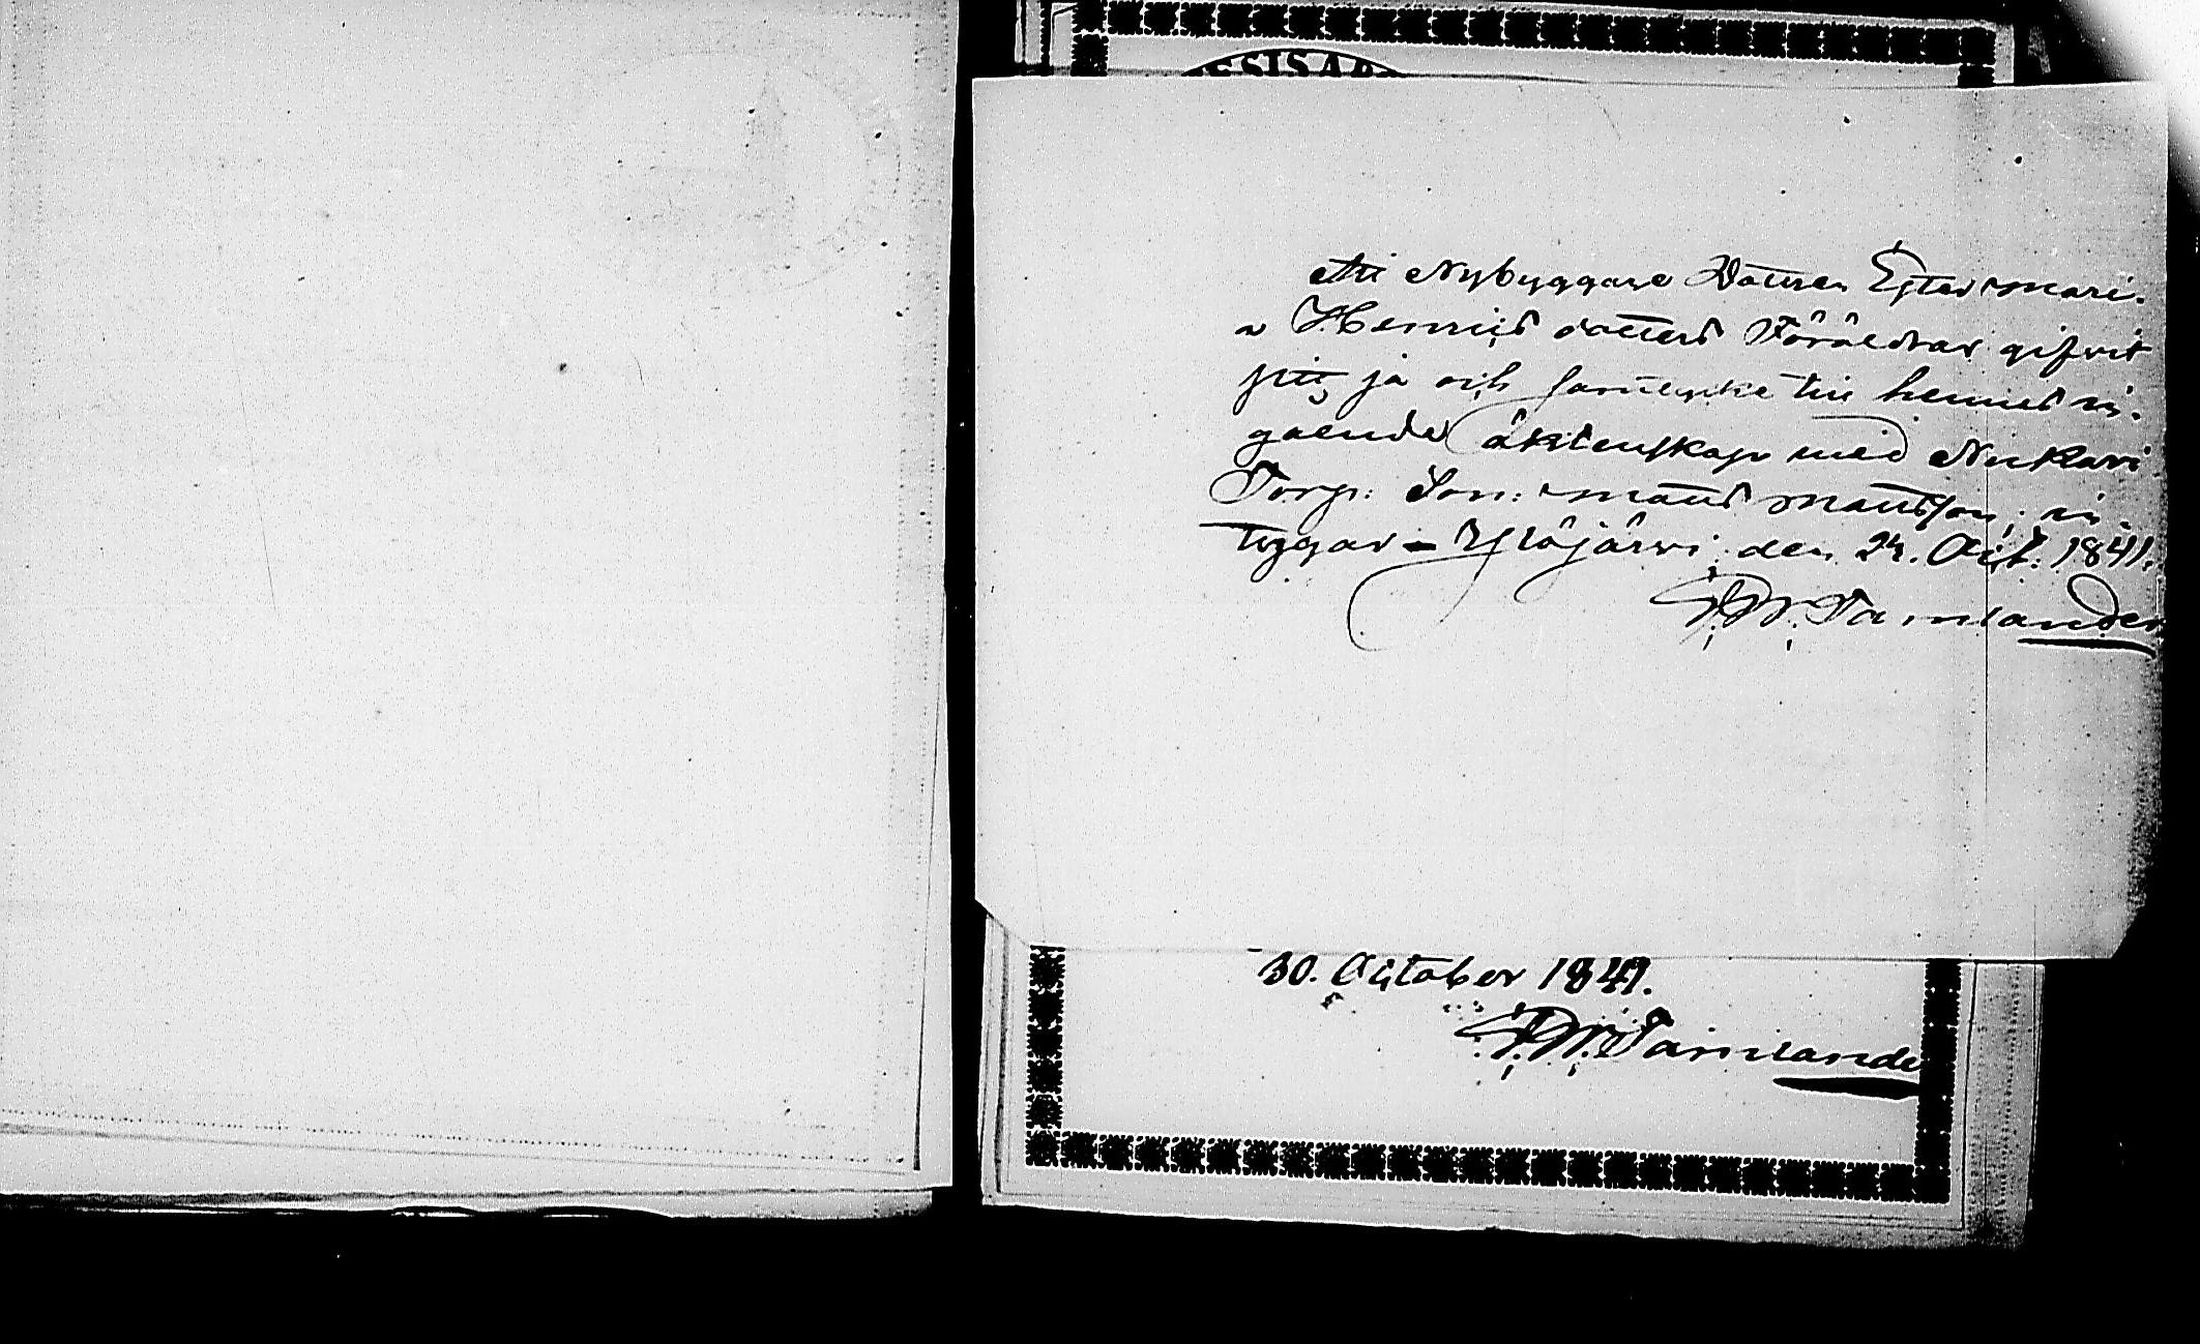 Att Nybyggare Dottren Ester Mari-
a Henrics dotters Föräldrar gifvit
sitt ja och samtycke till hennes in-
gående äktenskap med
Torp: Son: Matts Mattsson; in-
tygar – Ylöjärvi den 24. Oct: 1841.
Tamlander
30. October 1841.